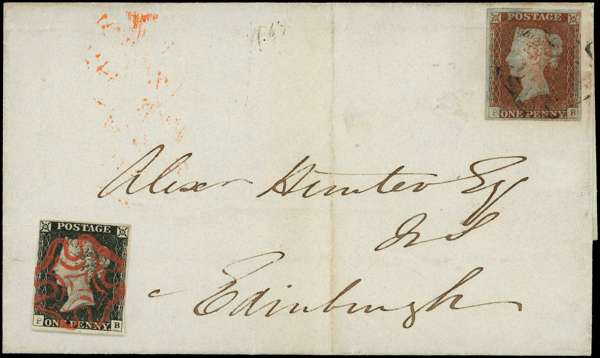 POSTAGE
B
ONE PENNY
Alexr Hunter Esq
WS
Edinburgh
POSTAGE
F B
ONE PENNY